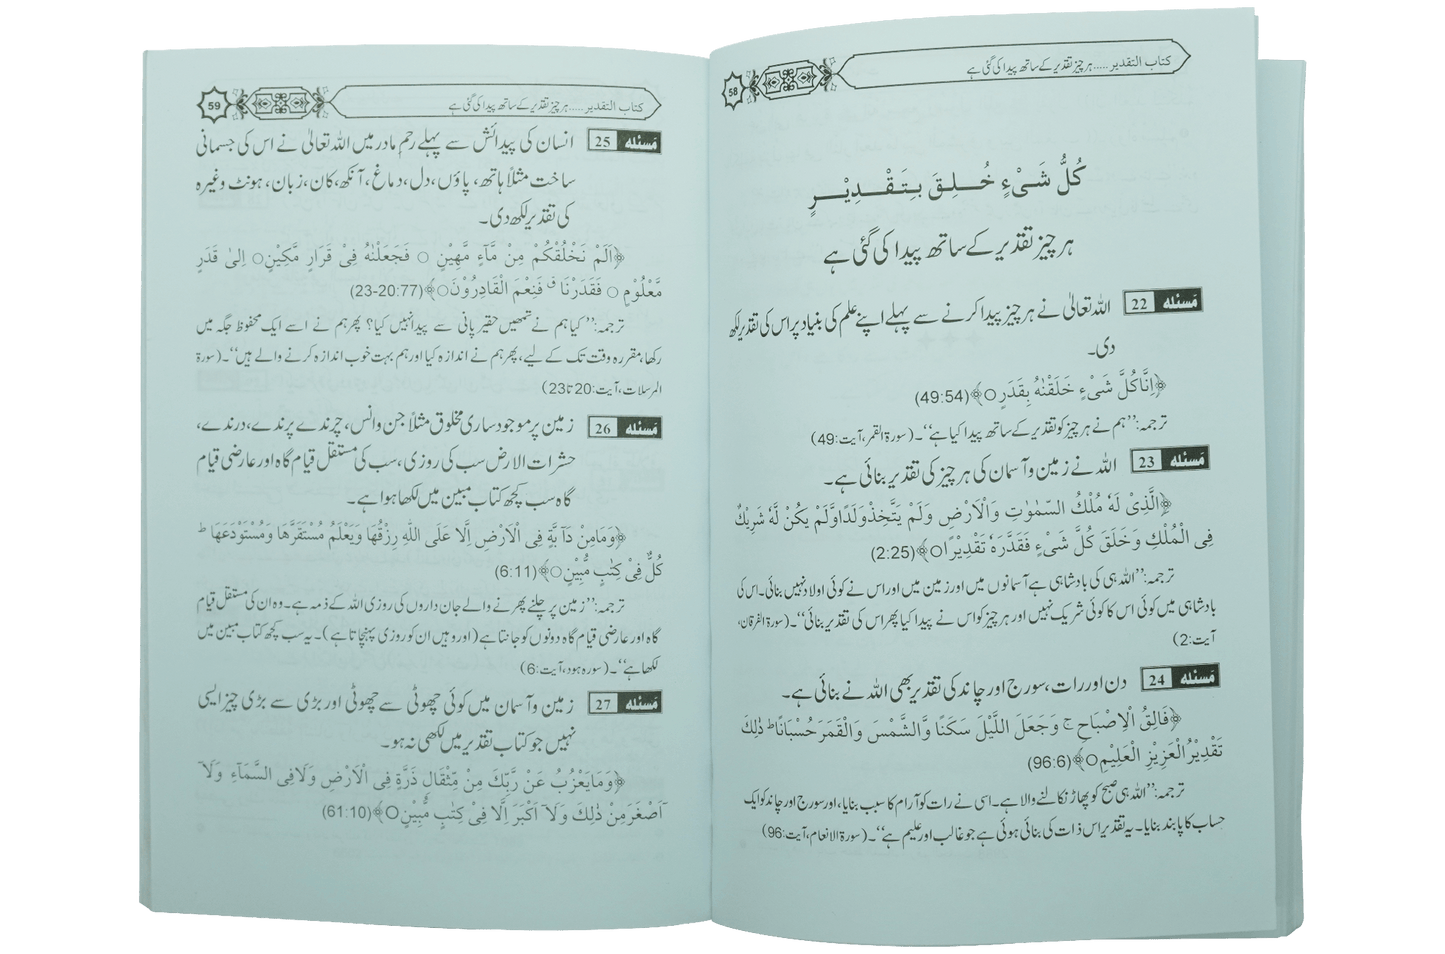 کتاب التقدیر.....ہر چیز تقدیر کے ساتھ پیدا کی گئی ہے
58
كُلُّ شَیْءٍ خُلِقَ بِتَقْدِيْرٍ
ہر چیز تقدیر کے ساتھ پیدا کی گئی ہے
مَسئله 22 اللہ تعالیٰ نے ہر چیز پیدا کرنے سے پہلے اپنے علم کی بنیاد پر اس کی تقدیر لکھ
دی۔
﴿اِنَّاكُلَّ شَیْءٍ خَلَقْنٰهُ بِقَدَرٍ○﴾(49:54)
ترجمہ:’’ہم نے ہر چیز کو تقدیر کے ساتھ پیدا کیا ہے‘‘۔(سورۃ القمر،آیت:49)
مَسئله 23 اللہ نے زمین و آسمان کی ہر چیز کی تقدیر بنائی ہے۔
﴿الَّذِیْ لَهٗ مُلْكُ السَّمٰوٰتِ وَالْاَرْضِ وَلَمْ يَتَّخِذْوَلَدًاوَّلَمْ يَكُنْ لَّهٗ شَرِيْكٌ
فِی الْمُلْكِ وَخَلَقَ كُلَّ شَیْءٍ فَقَدَّرَهٗ تَقْدِيْرًا○﴾(2:25)
ترجمہ:’’اللہ ہی کی بادشاہی ہے آسمانوں میں اور زمین میں اور اس نے کوئی اولاد نہیں بنائی۔اس کی
بادشاہی میں کوئی اس کا کوئی شریک نہیں اور ہر چیز کو اس نے پیدا کیا پھر اس کی تقدیر بنائی‘‘۔(سورۃ الفرقان،
آیت:2)
مَسئله 24 دن اور رات،سورج اور چاند کی تقدیر بھی اللہ نے بنائی ہے۔
﴿فَالِقُ الْاِصْبَاحِ ج وَجَعَلَ اللَّيْلَ سَكَنًا وَّالشَّمْسَ وَالْقَمَرَحُسْبَانًا ط ذٰلِكَ
تَقْدِيْرُالْعَزِيْزِ الْعَلِيْمِ○﴾(96:6)
ترجمہ:’’اللہ ہی صبح کو پھاڑ نکالنے والا ہے۔اسی نے رات کو آرام کا سبب بنایا،اور سورج اور چاند کو ایک
حساب کا پابند بنایا۔یہ تقدیر اس ذات کی بنائی ہوئی ہے جو غالب اور علیم ہے‘‘۔(سورۃ الانعام،آیت:96)
کتاب التقدیر.....ہر چیز تقدیر کے ساتھ پیدا کی گئی ہے
59
مَسئله 25 انسان کی پیدائش سے پہلے رحم مادر میں اللہ تعالیٰ نے اس کی جسمانی
ساخت مثلاً ہاتھ،پاؤں،دل،دماغ،آنکھ،کان،زبان،ہونٹ وغیرہ
کی تقدیر لکھ دی۔
﴿اَلَمْ نَخْلُقْكُمْ مِنْ مَّآءٍ مَّهِيْنٍ ○ فَجَعَلْنٰهُ فِیْ قَرَارٍ مَّكِيْنٍ○ اِلٰی قَدَرٍ
مَّعْلُوْمٍ ○ فَقَدَرْنَا ق فَنِعْمَ الْقَادِرُوْنَ○﴾(77:20-23)
ترجمہ:’’کیا ہم نے تمھیں حقیر پانی سے پیدا نہیں کیا؟ پھر ہم نے اسے ایک محفوظ جگہ میں
رکھا،مقررہ وقت تک کے لیے،پھر ہم نے اندازہ کیا اور ہم بہت خوب اندازہ کرنے والے ہیں‘‘۔(سورۃ
المرسلات،آیت:20تا23)
مَسئله 26 زمین پر موجود ساری مخلوق مثلاً جن و انس،چرندے پرندے،درندے،
حشرات الارض سب کی روزی،سب کی مستقل قیام گاہ اور عارضی قیام
گاہ سب کچھ کتاب مبین میں لکھا ہوا ہے۔
﴿وَمَامِنْ دَآبَّةٍ فِی الْاَرْضِ اِلَّا عَلَی اللّٰهِ رِزْقُهَا وَيَعْلَمُ مُسْتَقَرَّهَا وَمُسْتَوْدَعَهَا ط
كُلٌّ فِیْ كِتٰبٍ مُّبِيْنٍ○﴾(6:11)
ترجمہ:’’زمین پر چلنے پھرنے والے جان داروں کی روزی اللہ کے ذمہ ہے۔وہ ان کی مستقل قیام
گاہ اور عارضی قیام گاہ دونوں کو جانتا ہے(اور وہیں ان کو روزی پہنچاتا ہے)۔یہ سب کچھ کتاب مبین میں
لکھا ہے‘‘۔(سورہ ہود،آیت:6)
مَسئله 27 زمین و آسمان میں کوئی چھوٹی سے چھوٹی اور بڑی سے بڑی چیز ایسی
نہیں جو کتاب تقدیر میں لکھی نہ ہو۔
﴿وَمَايَعْزُبُ عَنْ رَّبِّكَ مِنْ مِّثْقَالِ ذَرَّةٍ فِی الْاَرْضِ وَلَافِی السَّمَآءِ وَلَآ
اَصْغَرَمِنْ ذٰلِكَ وَلَآ اَكْبَرَ اِلَّا فِیْ كِتٰبٍ مُّبِيْنٍ○﴾(61:10)